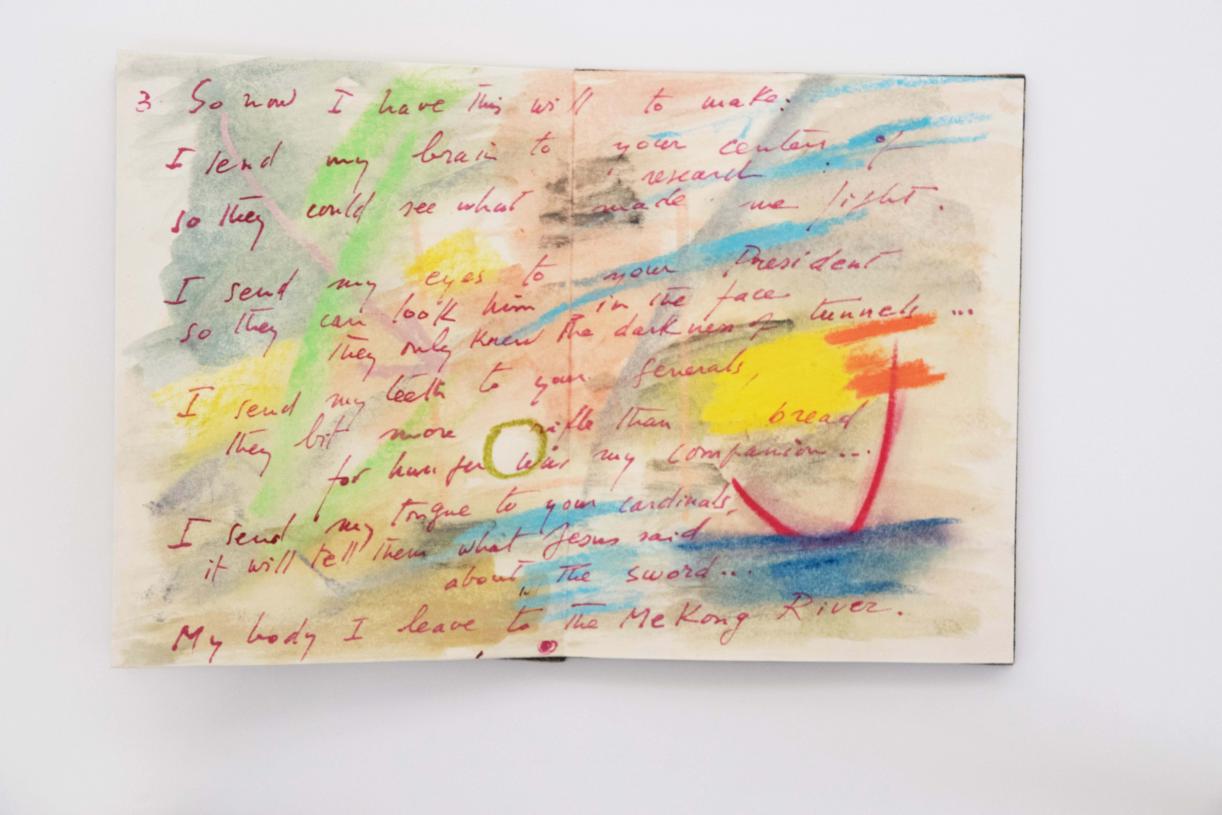 3 So now I have this will to make:
I send my brain to your centers of
research
so they could see what made me fight.
I send my eyes to your President
so they can look him in the face
they only knew the darkness of tunnels...
I send my teeth to your generals,
they bit more rifle than bread
for hunger was my companion...
I send my tongue to your cardinals,
it will tell them what Jesus said
about the sword...
My body I leave to the MeKong River.